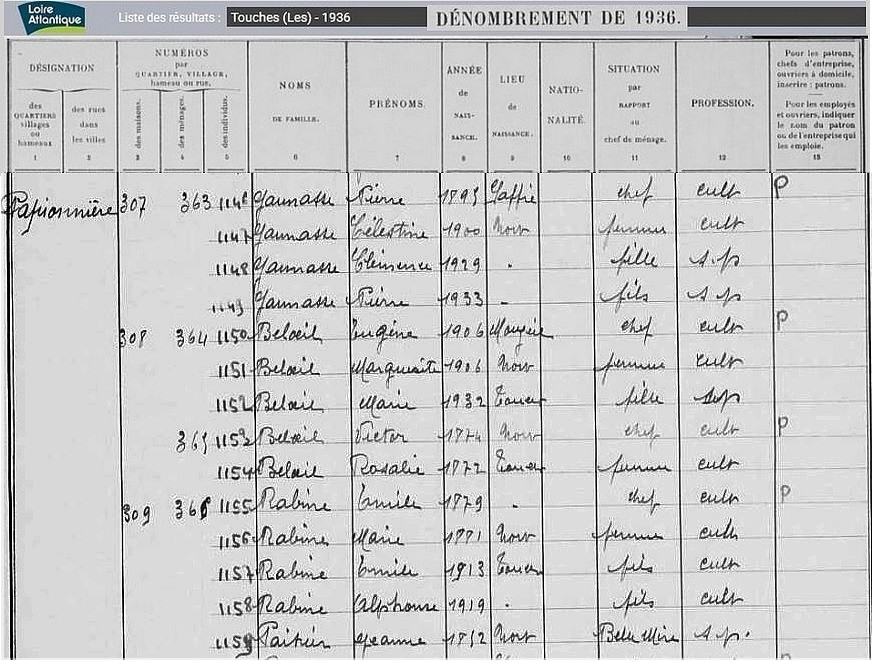 Loire Atlantique
Liste des résultats : Touches (Les) - 1936
DÉNOMBREMENT DE 1936.
DÉSIGNATION
des QUARTIERS villages ou hameaux 1
des rues dans les villes 2
NUMÉROS par QUARTIER, VILLAGE, hameau ou rue.
des maisons. 3
des ménages. 4
des individus. 5
NOMS DE FAMILLE. 6
PRÉNOMS. 7
ANNÉE de NAISSANCE. 8
LIEU de NAISSANCE. 9
NATIONALITÉ. 10
SITUATION par RAPPORT au chef de ménage. 11
PROFESSION. 12
Pour les patrons, chefs d'entreprise, ouvriers à domicile, inscrire : patrons.
Pour les employés et ouvriers, indiquer le nom du patron ou de l'entreprise qui les emploie. 13
Papionnière 307 363 1146 Gaunasse Pierre 1893 chef cult P
1147 Gaunasse Célestine 1900 Nort femme cult
1148 Gaunasse Clémence 1929 . fille s.p
1149 Gaunasse Pierre 1933 - fils s p
308 364 1150 Beloeil Eugène 1906 chef cult P
1151 Beloeil Marguerite 1906 Nort femme cult
1152 Beloeil Marie 1932 Touches fille s.p
365 1153 Beloeil Victor 1874 Nort chef cult P
1154 Beloeil Rosalie 1872 Touches femme cult
309 366 1155 Rabine Emile 1879 . chef cult P
1156 Rabine Marie 1881 Nort femme cult
1157 Rabine Emile 1913 Touches fils cult
1158 Rabine Alphonse 1919 . fils cult
1159 Jeanne 1852 Nort Belle Mère s.p.